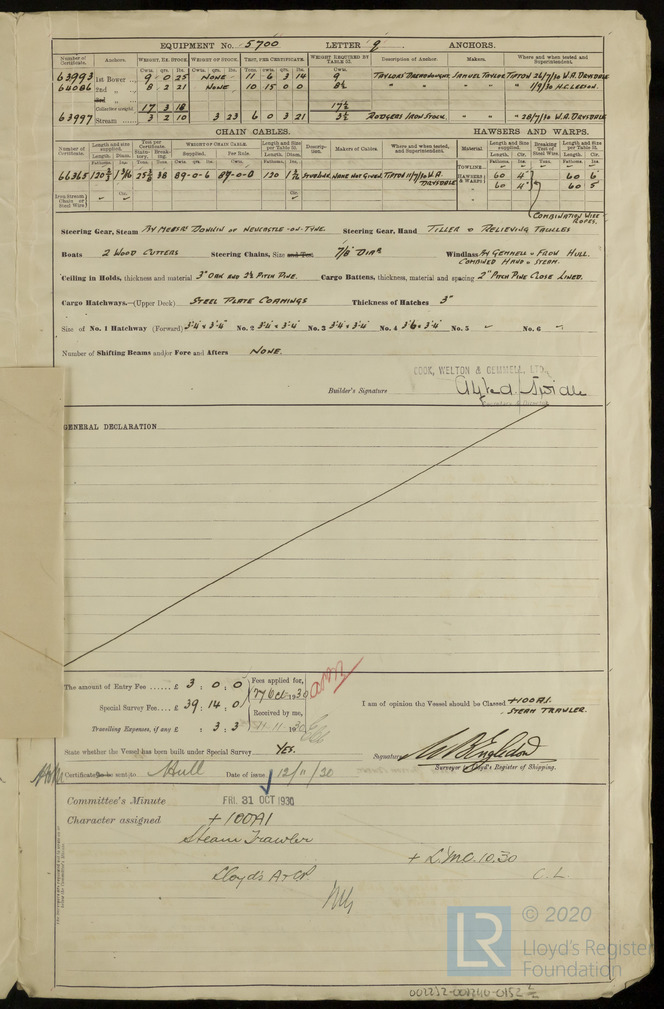 EQUIPMENT No. 5700 LETTER q ANCHORS.
Number of Certificate. Anchors. WEIGHT, EX. STOCK. WEIGHT OF STOCK. TEST, PER CERTIFICATE. WEIGHT REQUIRED BY TABLE 53. Description of Anchor. Makers. Where and when tested and Superintendent.
Cwts. qrs. lbs. Cwts. qrs. lbs. Tons. cwts. qrs. lbs. Cwts.
63993 1st Bower 9 0 25 NONE 11 6 3 14 9 TAYLORS DREADNOUGHT SAMUEL TAYLOR TIPTON 26/7/30 W.A. DRYSDALE
64086 2nd " 8 2 21 NONE 10 15 0 0 8½ " " " 1/9/30 H.C. LEESON.
3rd "
Collective weight. 17 3 18 17½
63997 Stream 3 2 10 3 23 6 0 3 21 3½ RODGERS IRON STOCK. " " 28/7/30 W.A. DRYSDALE
CHAIN CABLES. HAWSERS AND WARPS.
Number of Certificate. Length and size supplied. Test per Certificate. WEIGHT OF CHAIN CABLE. Length and Size per Table 53. Description. Makers of Cables. Where and when tested, and Superintendent. Material Length and Size supplied. Breaking Test of Steel Wire Length and Size per Table 53.
Length. Diam. Statutory. Breaking. Supplied. Per Rule. Length. Diam. Length. Cir. Length. Cir.
Fathoms. Ins. Tons. Tons. Cwts. qrs. lbs. Cwts. Fathoms. Ins. Fathoms. Ins. Tons. Fathoms. Ins.
TOWLINE
66365 120⅔ 1 3/16 38 89-0-6 89-0-0 120 1 3/16 STUDLINK NONE NOT GIVEN. TIPTON 11/7/30 W.A. DRYSDALE HAWSERS & WARPS 60 4" 60 6"
" 60 4" 60 5"
Iron Stream Chain or Steel Wire
COMBINATION WIRE ROPES.
Steering Gear, Steam BY MESSRS DONKIN OF NEWCASTLE-ON-TYNE. Steering Gear, Hand TILLER & RELIEVING TACKLES
Boats 2 WOOD CUTTERS Steering Chains, Size and Test 7/8" DIAR Windlass BY GEMMELL & FROW HULL. COMBINED HAND & STEAM.
Ceiling in Holds, thickness and material 3" OAK AND 2½ PITCH PINE. Cargo Battens, thickness, material and spacing 2" PITCH PINE CLOSE LINED.
Cargo Hatchways.—(Upper Deck) STEEL PLATE COAMINGS Thickness of Hatches 3"
Size of No. 1 Hatchway (Forward) 3'-4" x 3'-4" No. 2 3'-4" x 3'-4" No. 3 3'-4" x 3'-4" No. 4 3'-6" x 3'-4" No. 5 No. 6
Number of Shifting Beams and/or Fore and Afters NONE.
COOK, WELTON & GEMMELL, LTD.
Builder's Signature
GENERAL DECLARATION
The amount of Entry Fee ...... £ 3 : 0 : 0 Fees applied for,
Special Survey Fee .... £ 39 : 14 : 0 Received by me,
Travelling Expenses, if any £ : 3 : 3
I am of opinion the Vessel should be Classed +100A1. STEAM TRAWLER.
State whether the Vessel has been built under Special Survey YES.
Signature
Surveyor to Lloyd's Register of Shipping.
Certificate to be sent to Hull Date of issue 12/11/30
Committee's Minute FRI. 31 OCT 1930
Character assigned +100A1
Steam Trawler
+ L.M.C. 10.30
Lloyd's A & CP
C. L.
LR © 2020
Lloyd's Register
Foundation
002232-002240-0152